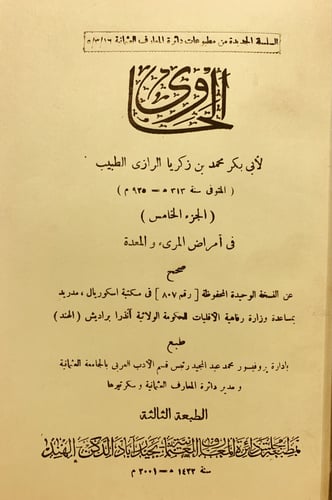 السلسلة الجديدة من مطبوعات دائرة المعارف العثمانية
الحاوى
لأبي بكر محمد بن زكريا الرازى الطبيب
( المتوفى سنة ٣١٣ ه – ٩٢٥ م )
( الجزء الخامس )
فى أمراض المرىء والمعدة
صحح
عن النسخة الوحيدة المحفوظة [ رقم ٨٠٧ ] فى مكتبة اسكوريال، مدريد
بمساعدة وزارة رفاهية الأقليات للحكومة الولائية آندرا براديش (الهند)
طبع
بادارة پروفيسور محمد عبد المجيد رئيس قسم الأدب العربى بالجامعة العثمانية
و مدير دائرة المعارف العثمانية و سكرتيرها
الطبعة الثالثة
بمطبعة مجلس دائرة المعارف العثمانية بحيدرآباد الدكن الهند
سنة ١٤٢٢ ه – ٢٠٠١ م